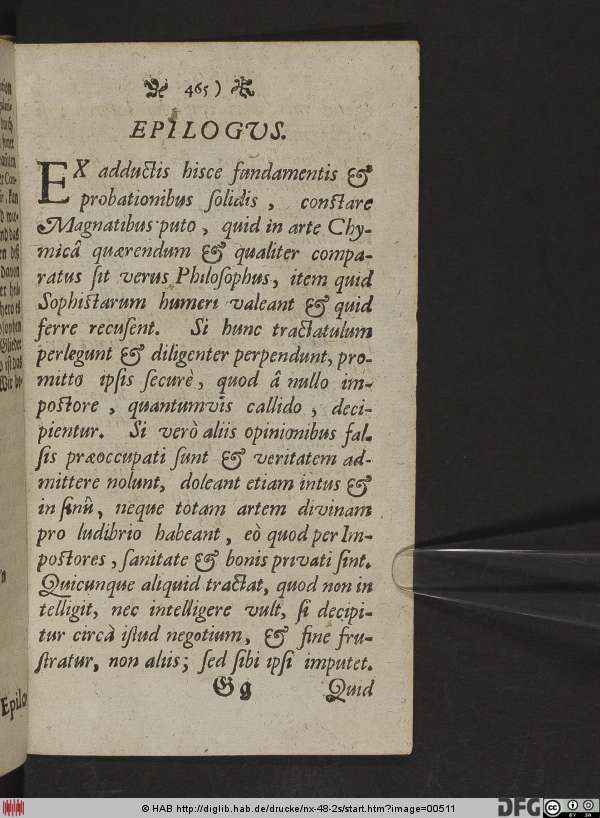 465 )
EPILOGVS.
EX adductis hisce fundamentis &
probationibus ſolidis, conſtare
Magnatibus puto, quid in arte Chy-
micâ quærendum & qualiter compa-
ratus ſit verus Philoſophus, item quid
Sophiſtarum humeri valeant & quid
ferre recuſent. Si hunc tractatulum
perlegunt & diligenter perpendunt, pro-
mitto ipſis ſecurè, quod â nullo im-
poſtore, quantumvis callido, deci-
pientur. Si verò aliis opinionibus fal-
ſis præoccupati ſunt & veritatem ad-
mittere nolunt, doleant etiam intus &
in ſinû, neque totam artem divinam
pro ludibrio habeant, eò quod per Im-
poſtores, ſanitate & bonis privati ſint.
Quicunque aliquid tractat, quod non in
telligit, nec intelligere vult, ſi decipi-
tur circà iſtud negotium, & fine fru-
ſtratur, non aliis; ſed ſibi ipſi imputet.
Gg Quid
Epilo
© HAB http://diglib.hab.de/drucke/nx-48-2s/start.htm?image=00511
DFG
cc
BY SA